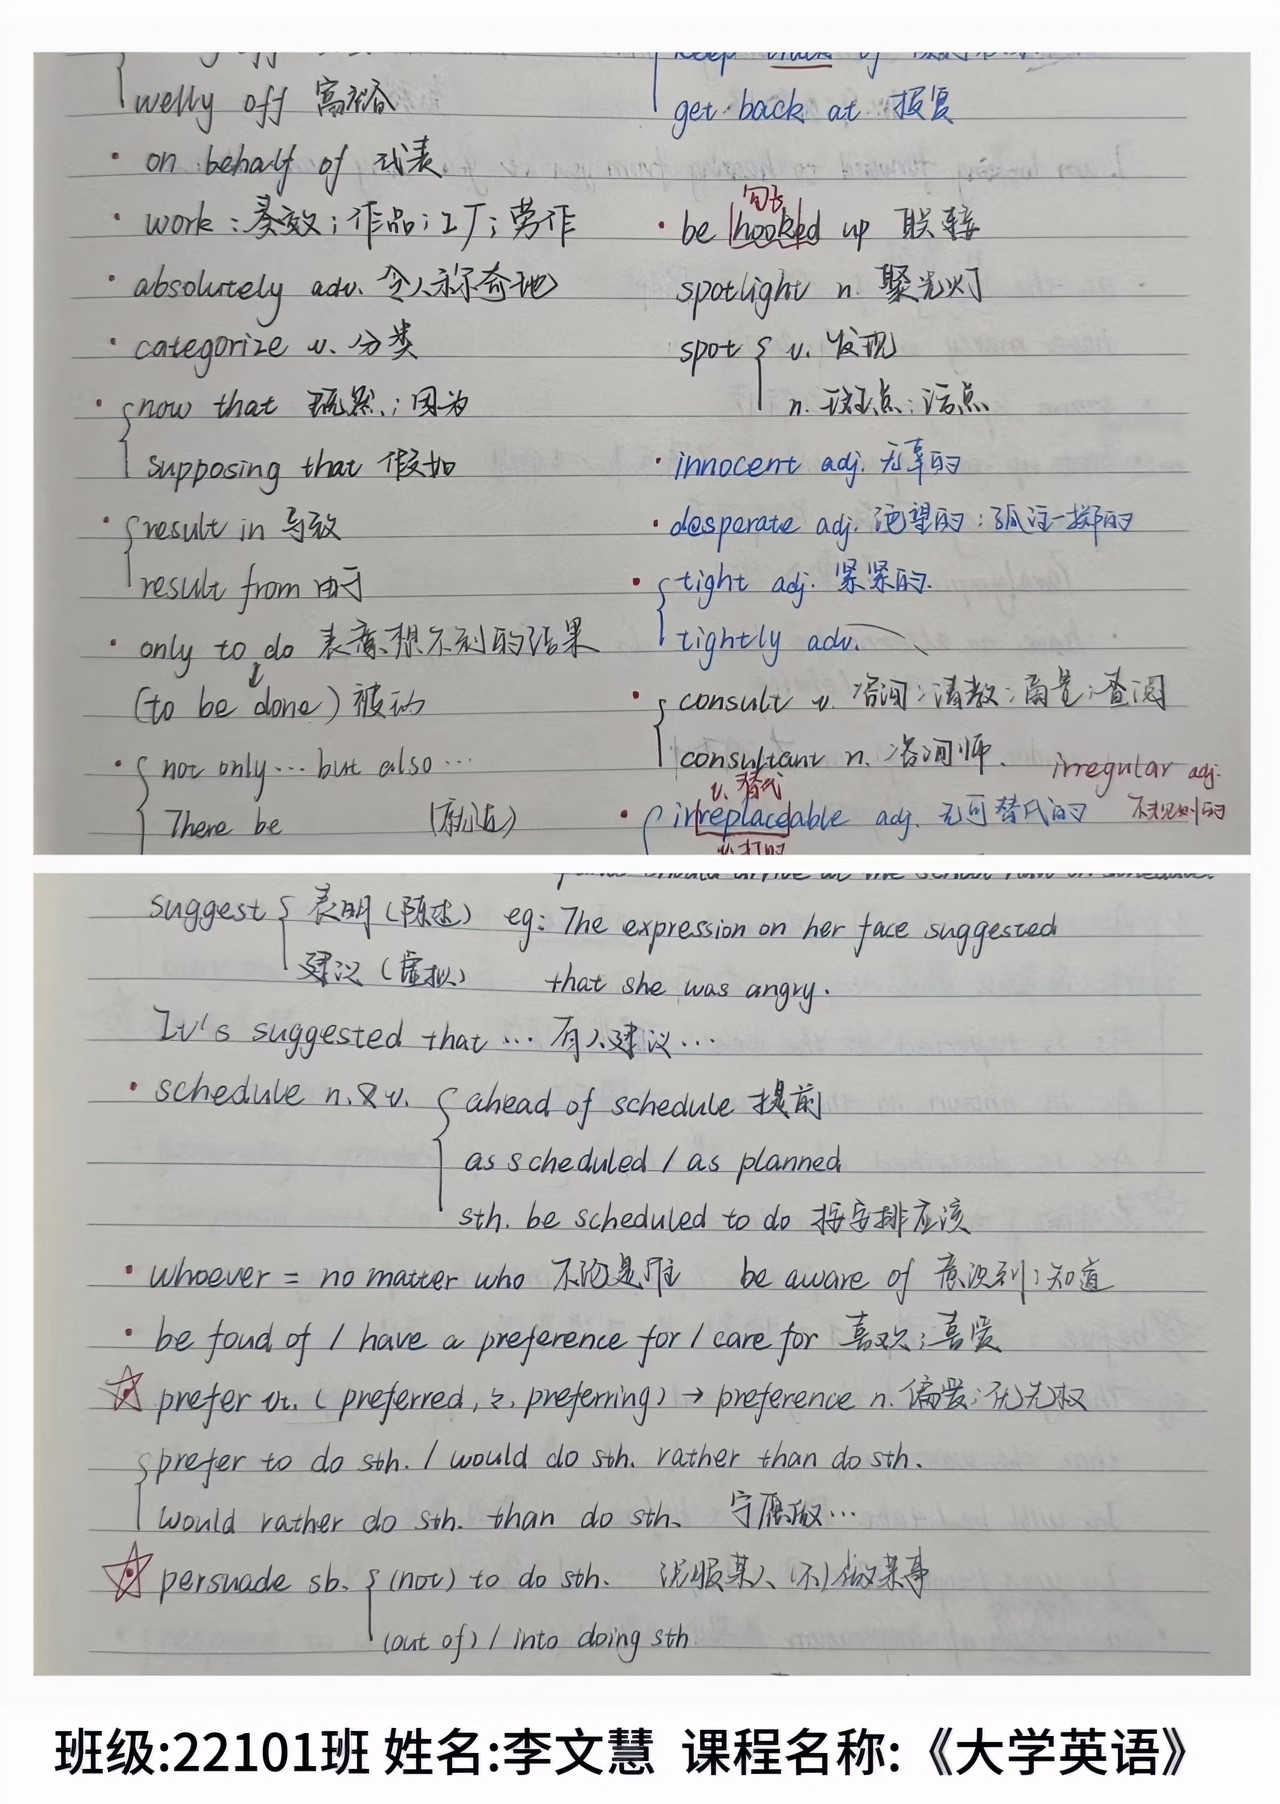 welly off 富裕
· on behalf of 代表
· work:奏效;作品;工厂;劳作
· absolutely adv. 令人称奇地
· categorize v. 分类
· now that 既然;因为
supposing that 假如
· result in 导致
result from 由于
· only to do 表意想不到的结果
(to be done) 被动
· not only … but also …
There be (就近)
get back at 报复
· be hooked up 联接
spotlight n. 聚光灯
spot v. 发现
n. 斑点;污点
· innocent adj. 无辜的
· desperate adj. 绝望的;孤注一掷的
· tight adj. 紧紧的.
tightly adv.
· consult v. 咨询;请教;商量;查阅
consultant n. 咨询师.
irregular adj.
v. 替代
· irreplaceable adj. 无可替代的 不规则的
suggest 表明(陈述) eg: The expression on her face suggested
建议(虚拟) that she was angry.
It's suggested that … 有人建议…
· schedule n.& v. ahead of schedule 提前
as scheduled / as planned
sth. be scheduled to do 按安排应该
· whoever = no matter who 不论是谁 be aware of 意识到;知道
· be foud of / have a preference for / care for 喜欢;喜爱
☆ prefer vt. ( preferred, preferring) → preference n. 偏爱;优先权
prefer to do sth. / would do sth. rather than do sth.
would rather do sth. than do sth. 宁愿做…
☆ persuade sb. (not) to do sth. 说服某人(不)做某事
(out of) / into doing sth
班级:22101班 姓名:李文慧 课程名称:《大学英语》